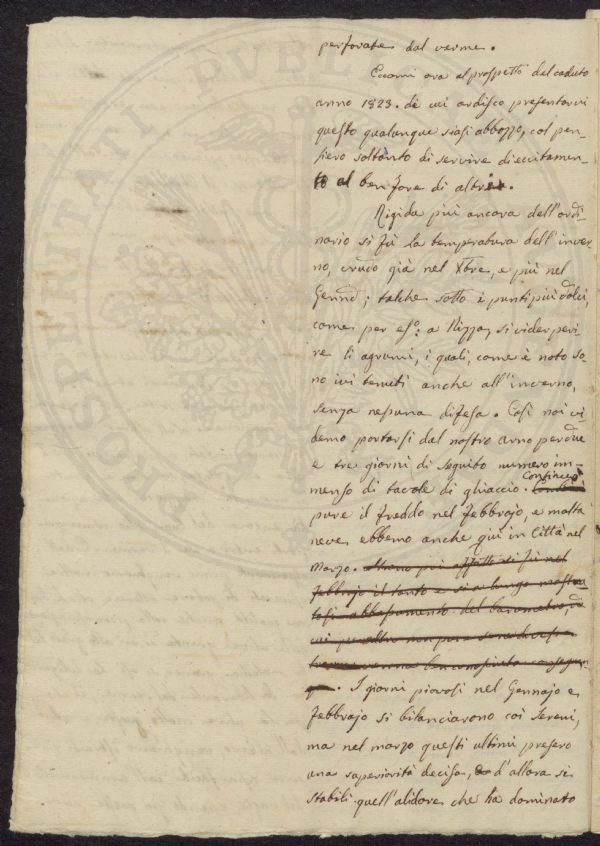 perforate dal verme.
Eccomi ora al prospetto del caduto
anno 1823. di cui ardisco presentarvi
questo qualunque siasi abbozzo, col pen-
siero soltanto di servire di eccitamen-
to al ben fare di altri.
Rigida più ancora dell'ordi-
nario si fù la temperatura dell'inver-
no, crudo già nel Xbre, e più nel
Genn°; talche sotto i punti più dolci,
come per es°: a Nizza, si vider peri-
re li agrumi, i quali, come è noto so-
no ivi tenuti anche all'inverno,
senza nessuna difesa. Così noi vi-
demo portarsi dal nostro Arno per due
e tre giorni di seguito numero im-
menso di tavole di ghiaccio. Continuò
pure il freddo nel Febbrajo, e molta
neve ebbemo anche qui in Città nel
Marzo.
Febbrajo il tanto e sì a lungo
abbassamento del barometro, di
cui
. I giorni piovosi nel Gennajo e
Febbrajo si bilanciarono coi sereni,
ma nel marzo questi ultimi presero
una superiorità decisa, d'allora si
stabilì quell'alidore che ha dominato
PROSPERITATI PUBLIC